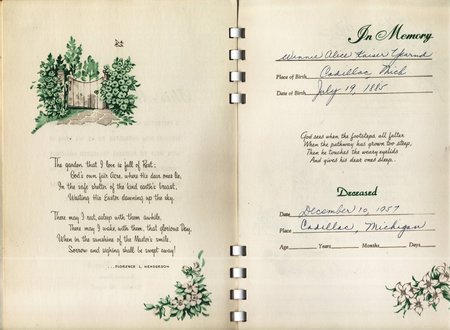 The garden that I love is full of Rest;
God's own fair Acre, where His dear ones lie,
In the safe shelter of the kind earth's breast,
Waiting His Easter dawning up the sky.
There may I rest, asleep with them awhile,
There may I wake, with them, that glorious Day,
When in the sunshine of the Master's smile,
Sorrow and sighing shall be swept away!
...FLORENCE L. HENDERSON
In Memory
Winnie Alice Kaiser
Place of Birth Cadillac Mich
Date of Birth July 19, 1885
God sees when the footsteps all falter
When the pathway has grown too steep,
Then he touches the weary eyelids
And gives his dear ones sleep..
Deceased
Date December 10, 1957
Place Cadillac, Michigan
Age Years Months Days